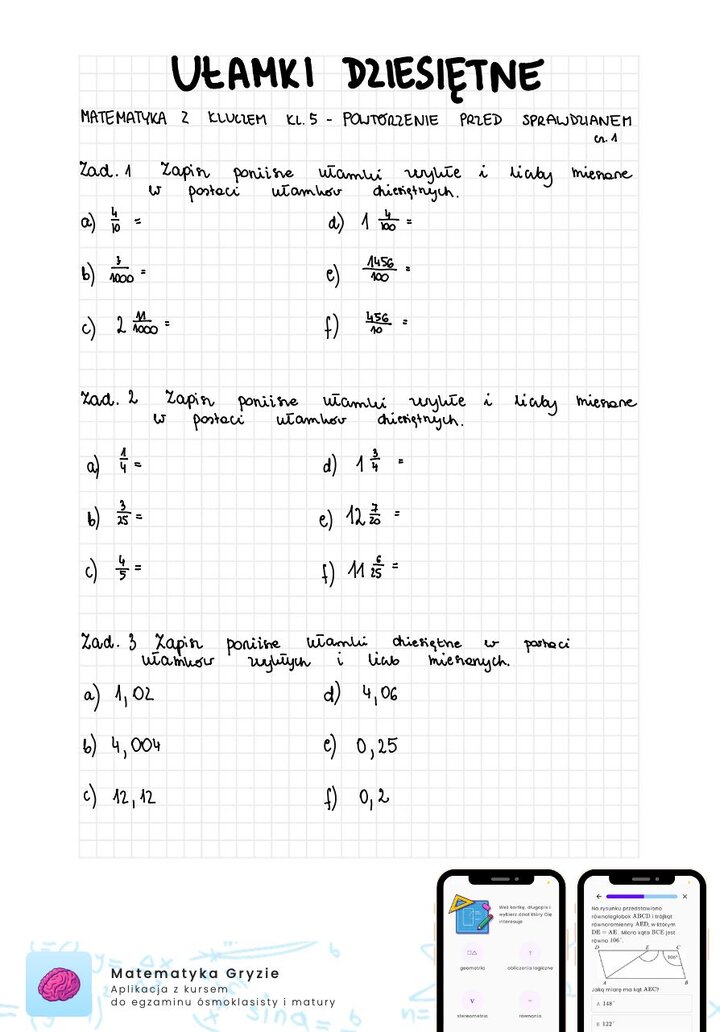 UŁAMKI DZIESIĘTNE
MATEMATYKA Z KLUCZEM KL. 5 - POWTÓRZENIE PRZED SPRAWDZIANEM
cz. 1
Zad. 1 Zapisz poniższe ułamki zwykłe i liczby mieszane
w postaci ułamków dziesiętnych.
a) 4/10 = d) 1 4/100 =
b) 3/1000 = e) 1456/100 =
c) 2 11/1000 = f) 456/10 =
Zad. 2 Zapisz poniższe ułamki zwykłe i liczby mieszane
w postaci ułamków dziesiętnych.
a) 1/4 = d) 1 3/4 =
b) 3/25 = e) 12 7/20 =
c) 4/5 = f) 11 6/25 =
Zad. 3 Zapisz poniższe ułamki dziesiętne w postaci
ułamków zwykłych i liczb mieszanych.
a) 1,02 d) 4,06
b) 4,004 e) 0,25
c) 12,12 f) 0,2
Weź kartkę, długopis i
wybierz dział który Cię
interesuje
geometria obliczenia logiczne
stereometria równania
Na rysunku przedstawiono
równoległobok ABCD i trójkąt
równoramienny AED, w którym
DE = AE. Miara kąta BCE jest
równa 106°.
D E C
106°
A B
Jaką miarę ma kąt AEC?
A. 148°
122°
Matematyka Gryzie
Aplikacja z kursem
do egzaminu ósmoklasisty i matury